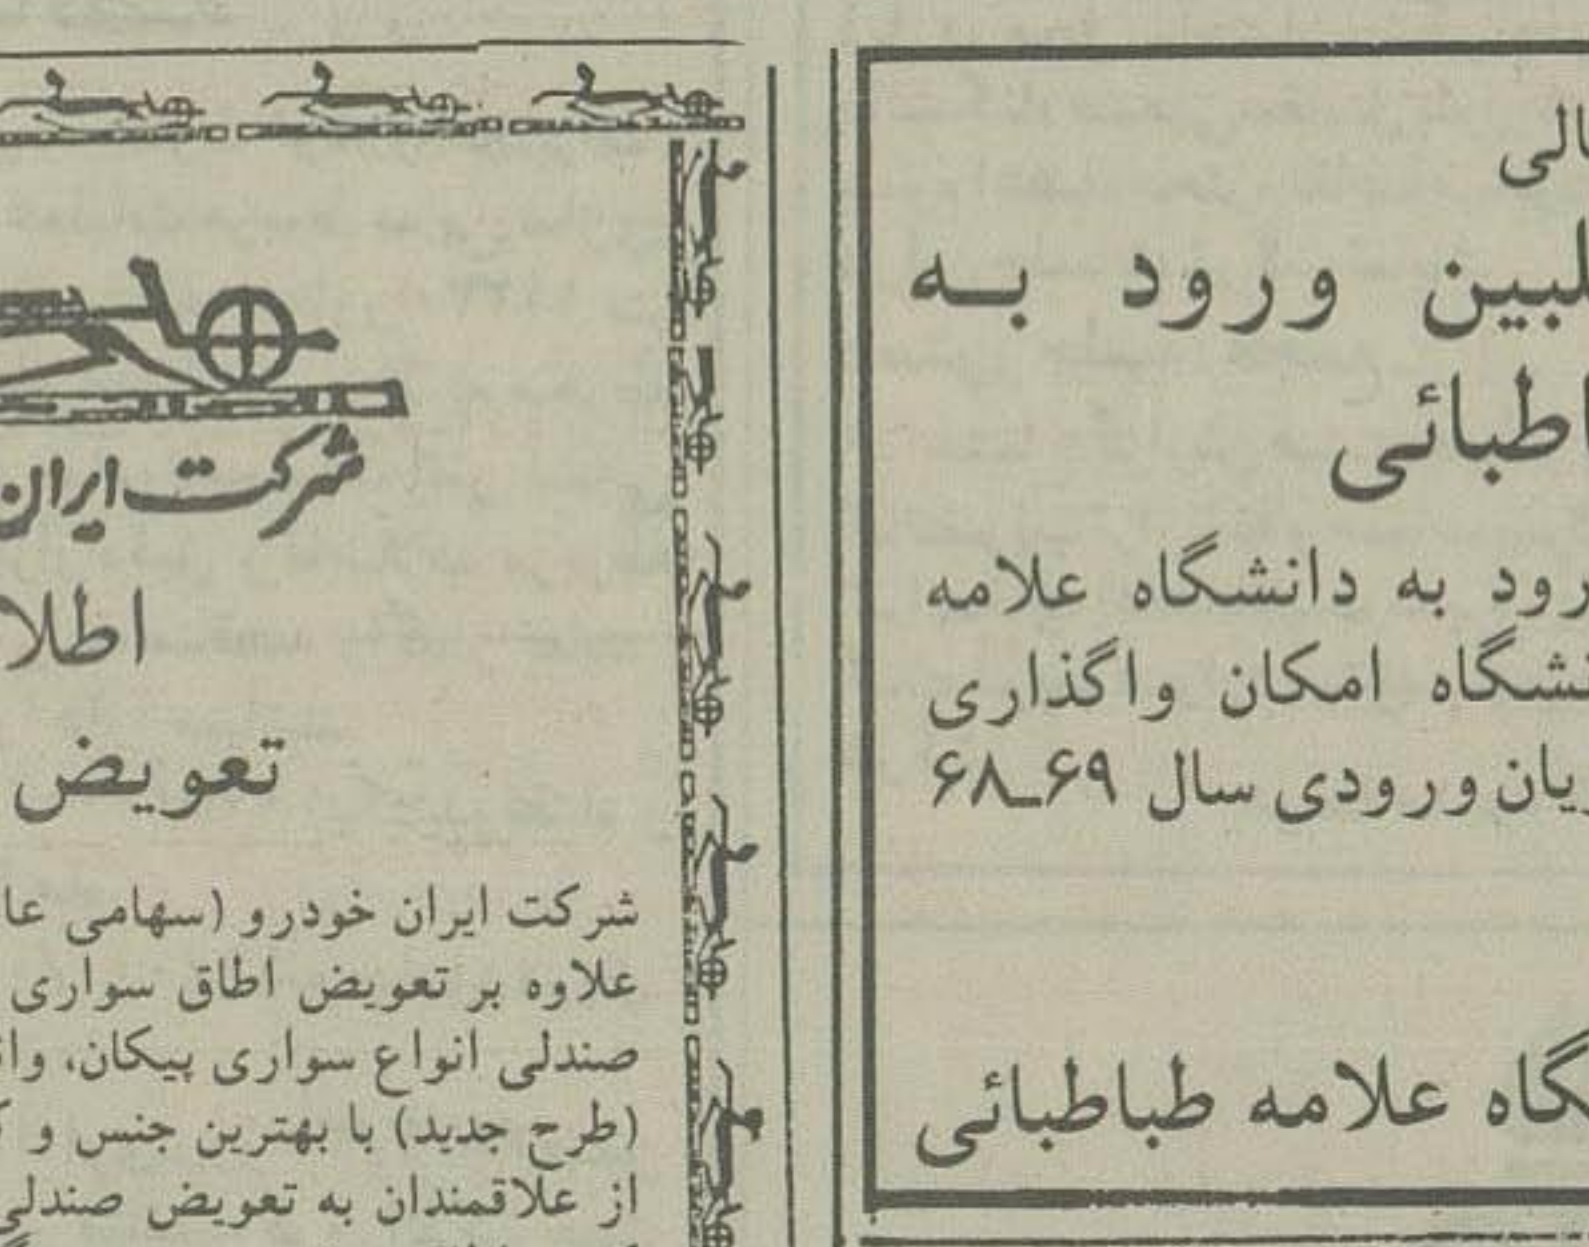 الی
لبین ورود به
اطبائی
رود به دانشگاه علامه
نشگاه امکان واگذاری
یان ورودی سال ۶۹ـ۶۸
گاه علامه طباطبائی
شرکت ایران
اطلا
تعویض
شرکت ایران خودرو (سهامی عا
علاوه بر تعویض اطاق سواری
صندلی انواع سواری پیکان، وا
(طرح جدید) با بهترین جنس و ک
از علاقمندان به تعویض صندلی